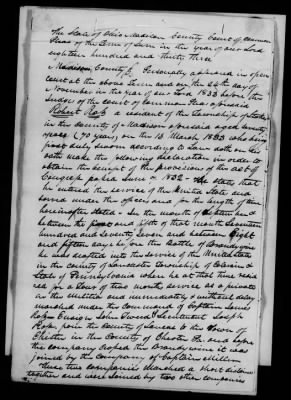 The State of Ohio Madison County Court of Common
Pleas of the Term of June in the year of our Lord
eighteen hundred and thirty three
Madison County Personally appeared in open
court at the above Term and on the 24th day of
in the year of our Lord 1833 before the
Judges of the court of Common Pleas aforesaid
Robert Ross a resident of the Township of
in the County of Madison aforesaid aged Seventy
years (70 years) on the 14 March 1833 who being
first duly sworn according to Law doth on his
oath make the following declaration in order to
obtain the benefit of the provisions of the act of
Congress passed June 1832 - He states that
he entered the service of the United State and
served under the officers and for the length of time
hereinafter stated - In the month of September
between the first and fifth of that month Seventeen
hundred and Seventy Seven and between Eight
and fifteen days before the Battle of Brandywine
he was drafted into the service of the United State
in the county of Lancaster Township of
State of Pennsylvania where he at that time
for a Tour of two months service as a private
in the Militia and immediately & without delay
marched under the command of Captain James
Ross Ensign John Lieutenant Joseph
Ross, from the County of Lancaster to the Town of
Chester in the County of Chester Pa. and before
the company crossed the Brandywine it was
joined by the company of Captain
these two companies marched a short distance
together and were joined by two other companies